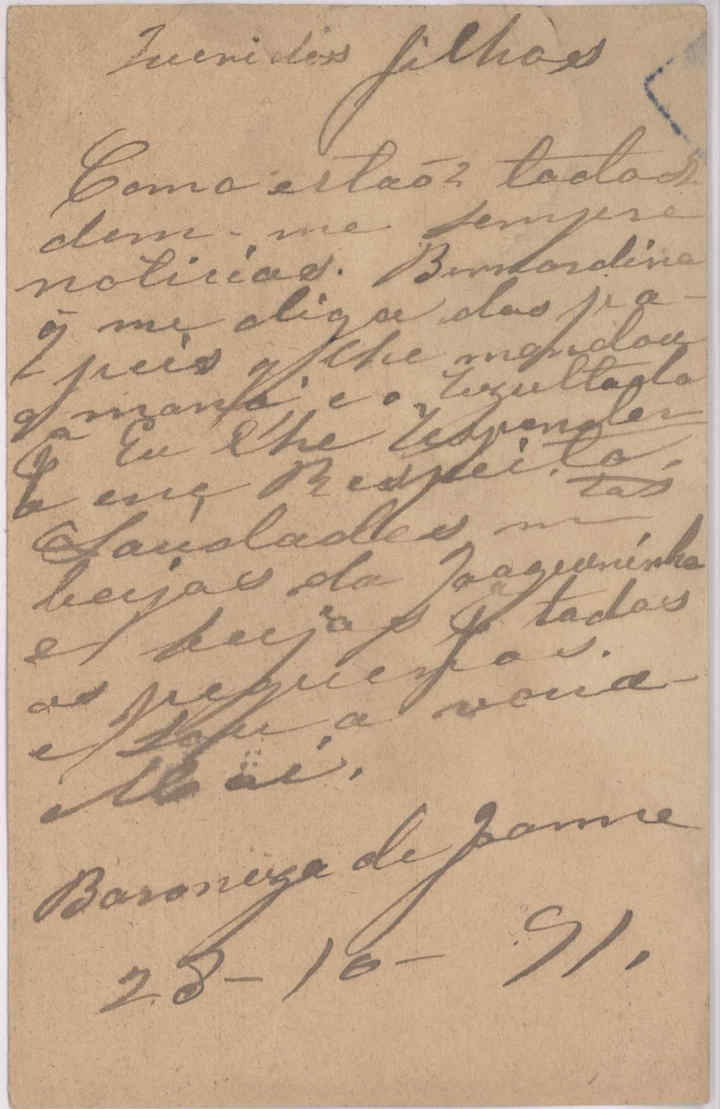 Queridos filhos
Como estaõ? todos
dem-me sempre
noticias. Bernardina
q̃ me diga dos pa-
peis q̃ lhe mandou
a mamã e o rezultado
pª Eu lhe responder
a esse Respeito.
Saudades mtas
beijos da Joaquininha
e beijos pª todos
os pequenos.
e sou a vossa
Mãi.
Baroneza de Joanne
28-10-91.